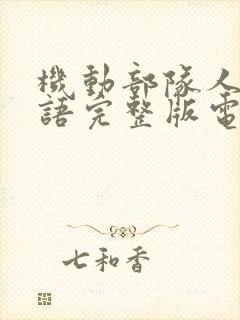 機動部隊人
語完整版電
七和香